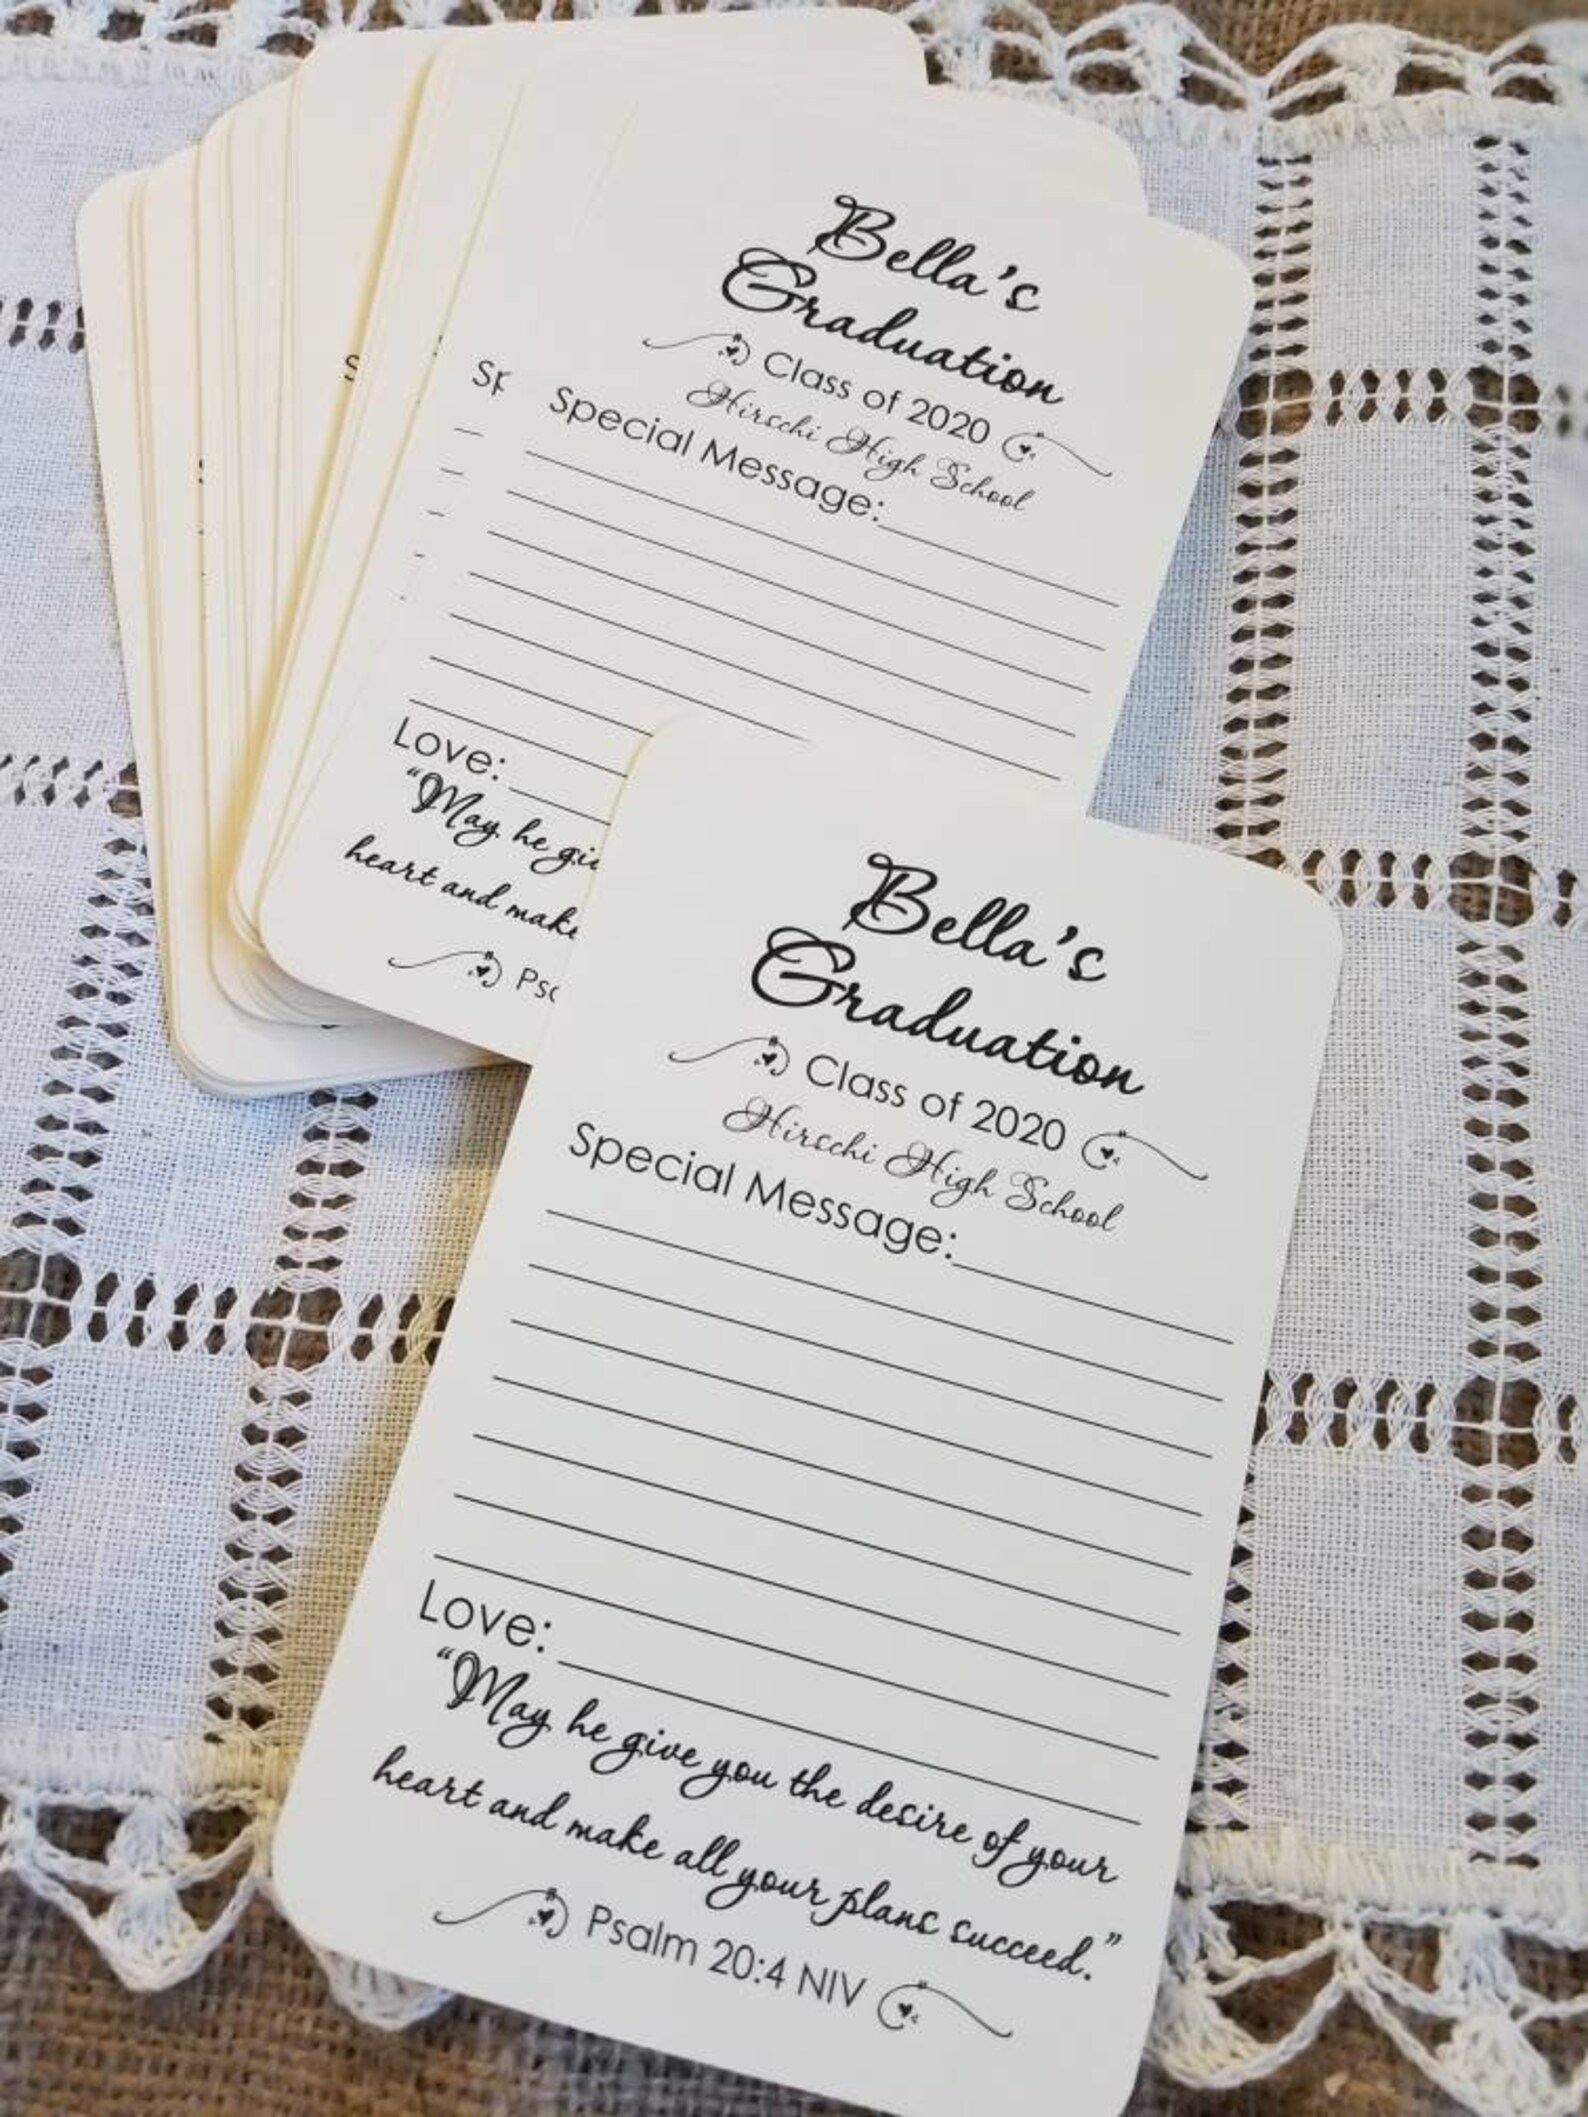 Bella's
Graduation
Class of 2020
Hirschi High School
Sp
Special Message:
Love:
"May he giv
heart and make
Psa
Bella's
Graduation
Class of 2020
Hirschi High School
Special Message:
Love:
"May he give you the desire of your
heart and make all your plans succeed."
Psalm 20:4 NIV